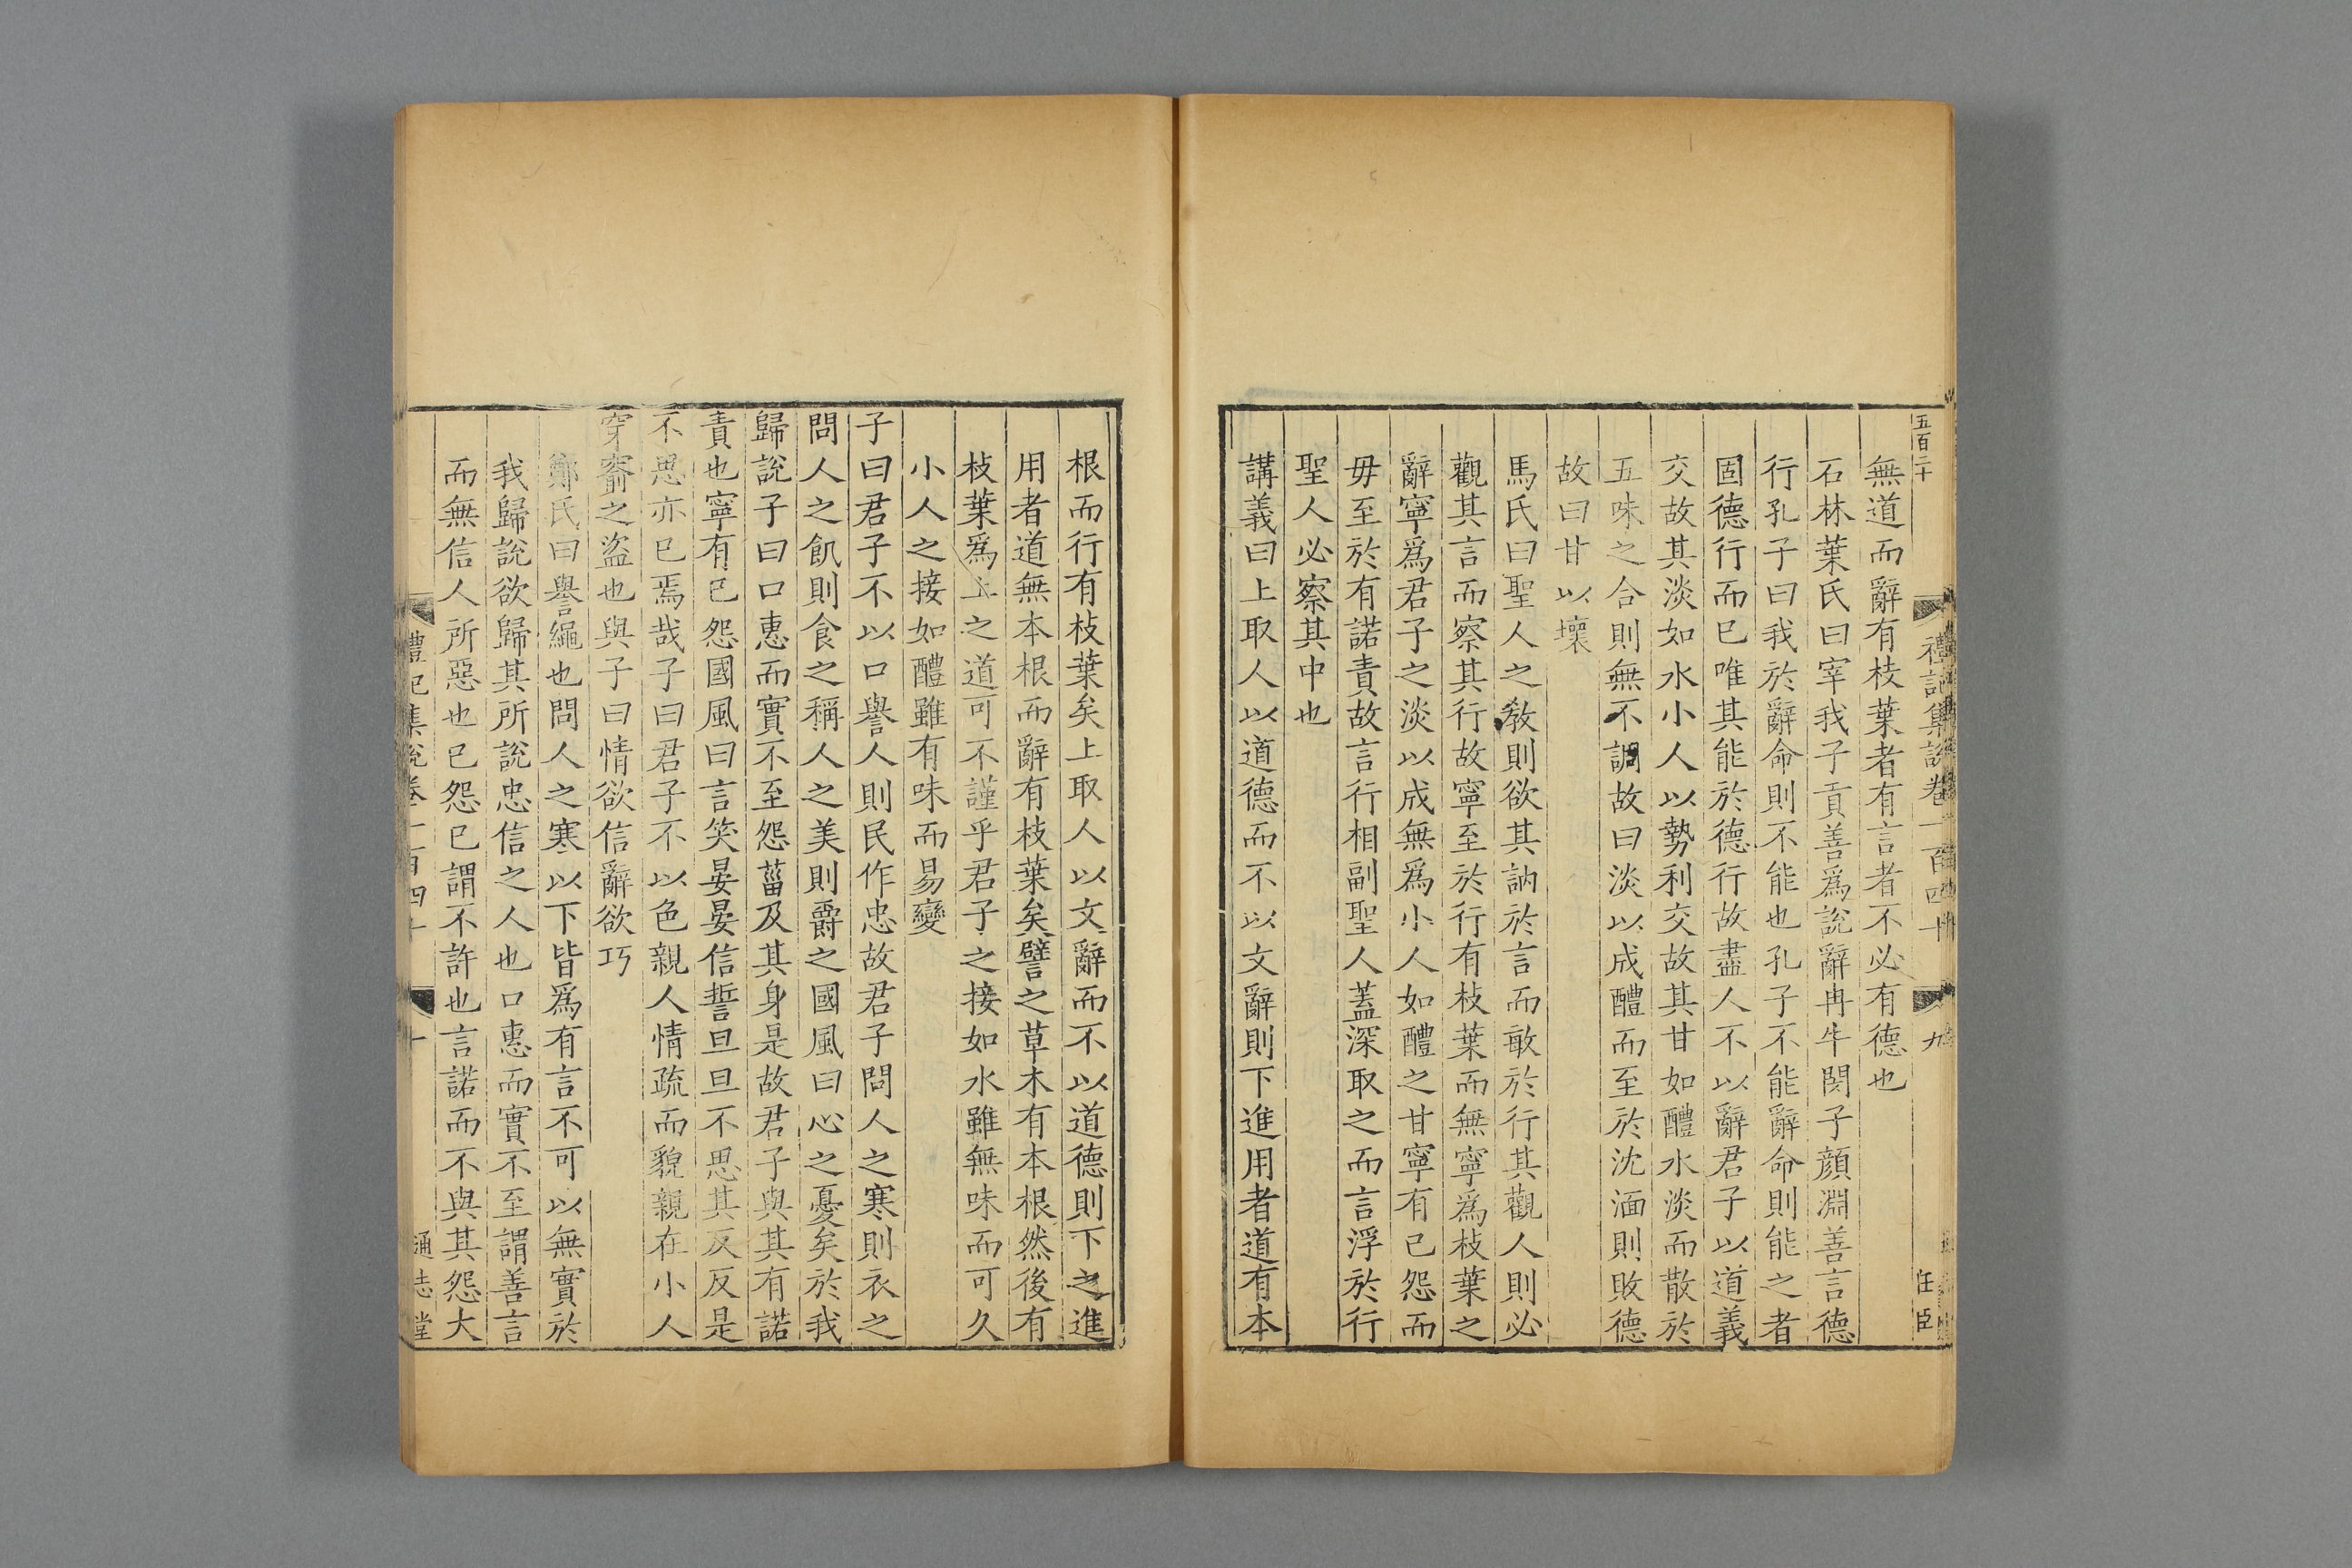 五百二十
禮記集說卷一百四十
九
任臣
無道而辭有枝葉者有言者不必有德也
石林葉氏曰宰我子貢善爲說辭冉牛閔子顏淵善言德
行孔子曰我於辭命則不能也孔子不能辭命則能之者
固德行而已唯其能於德行故盡人不以辭君子以道義
交故其淡如水小人以勢利交故其甘如醴水淡而散於
五味之合則無不調故曰淡以成醴而至於沈湎則敗德
故曰甘以壞
馬氏曰聖人之敎則欲其訥於言而敏於行其觀人則必
觀其言而察其行故寧至於行有枝葉而無寧爲枝葉之
辭寧爲君子之淡以成無爲小人如醴之甘寧有己怨而
毋至於有諾責故言行相副聖人蓋深取之而言浮於行
聖人必察其中也
講義曰上取人以道德而不以文辭則下進用者道有本
根而行有枝葉矣上取人以文辭而不以道德則下之進
用者道無本根而辭有枝葉矣譬之草木有本根然後有
枝葉爲上之道可不謹乎君子之接如水雖無味而可久
小人之接如醴雖有味而易變
子曰君子不以口譽人則民作忠故君子問人之寒則衣之
問人之飢則食之稱人之美則爵之國風曰心之憂矣於我
歸說子曰口惠而實不至怨菑及其身是故君子與其有諾
責也寧有已怨國風曰言笑晏晏信誓旦旦不思其反反是
不思亦已焉哉子曰君子不以色親人情疏而貌親在小人
穿窬之盜也與子曰情欲信辭欲巧
鄭氏曰譽繩也問人之寒以下皆爲有言不可以無實於
我歸說欲歸其所說忠信之人也口惠而實不至謂善言
而無信人所惡也已怨已謂不許也言諾而不與其怨大
禮記集說卷一百四十
十
通志堂